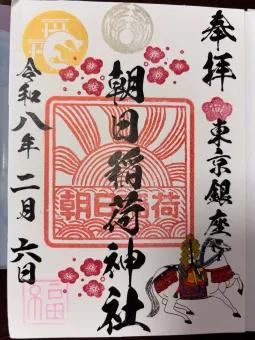 奉拝
東京銀座
朝日稲荷神社
朝日稲荷
令和八年二月六日
福